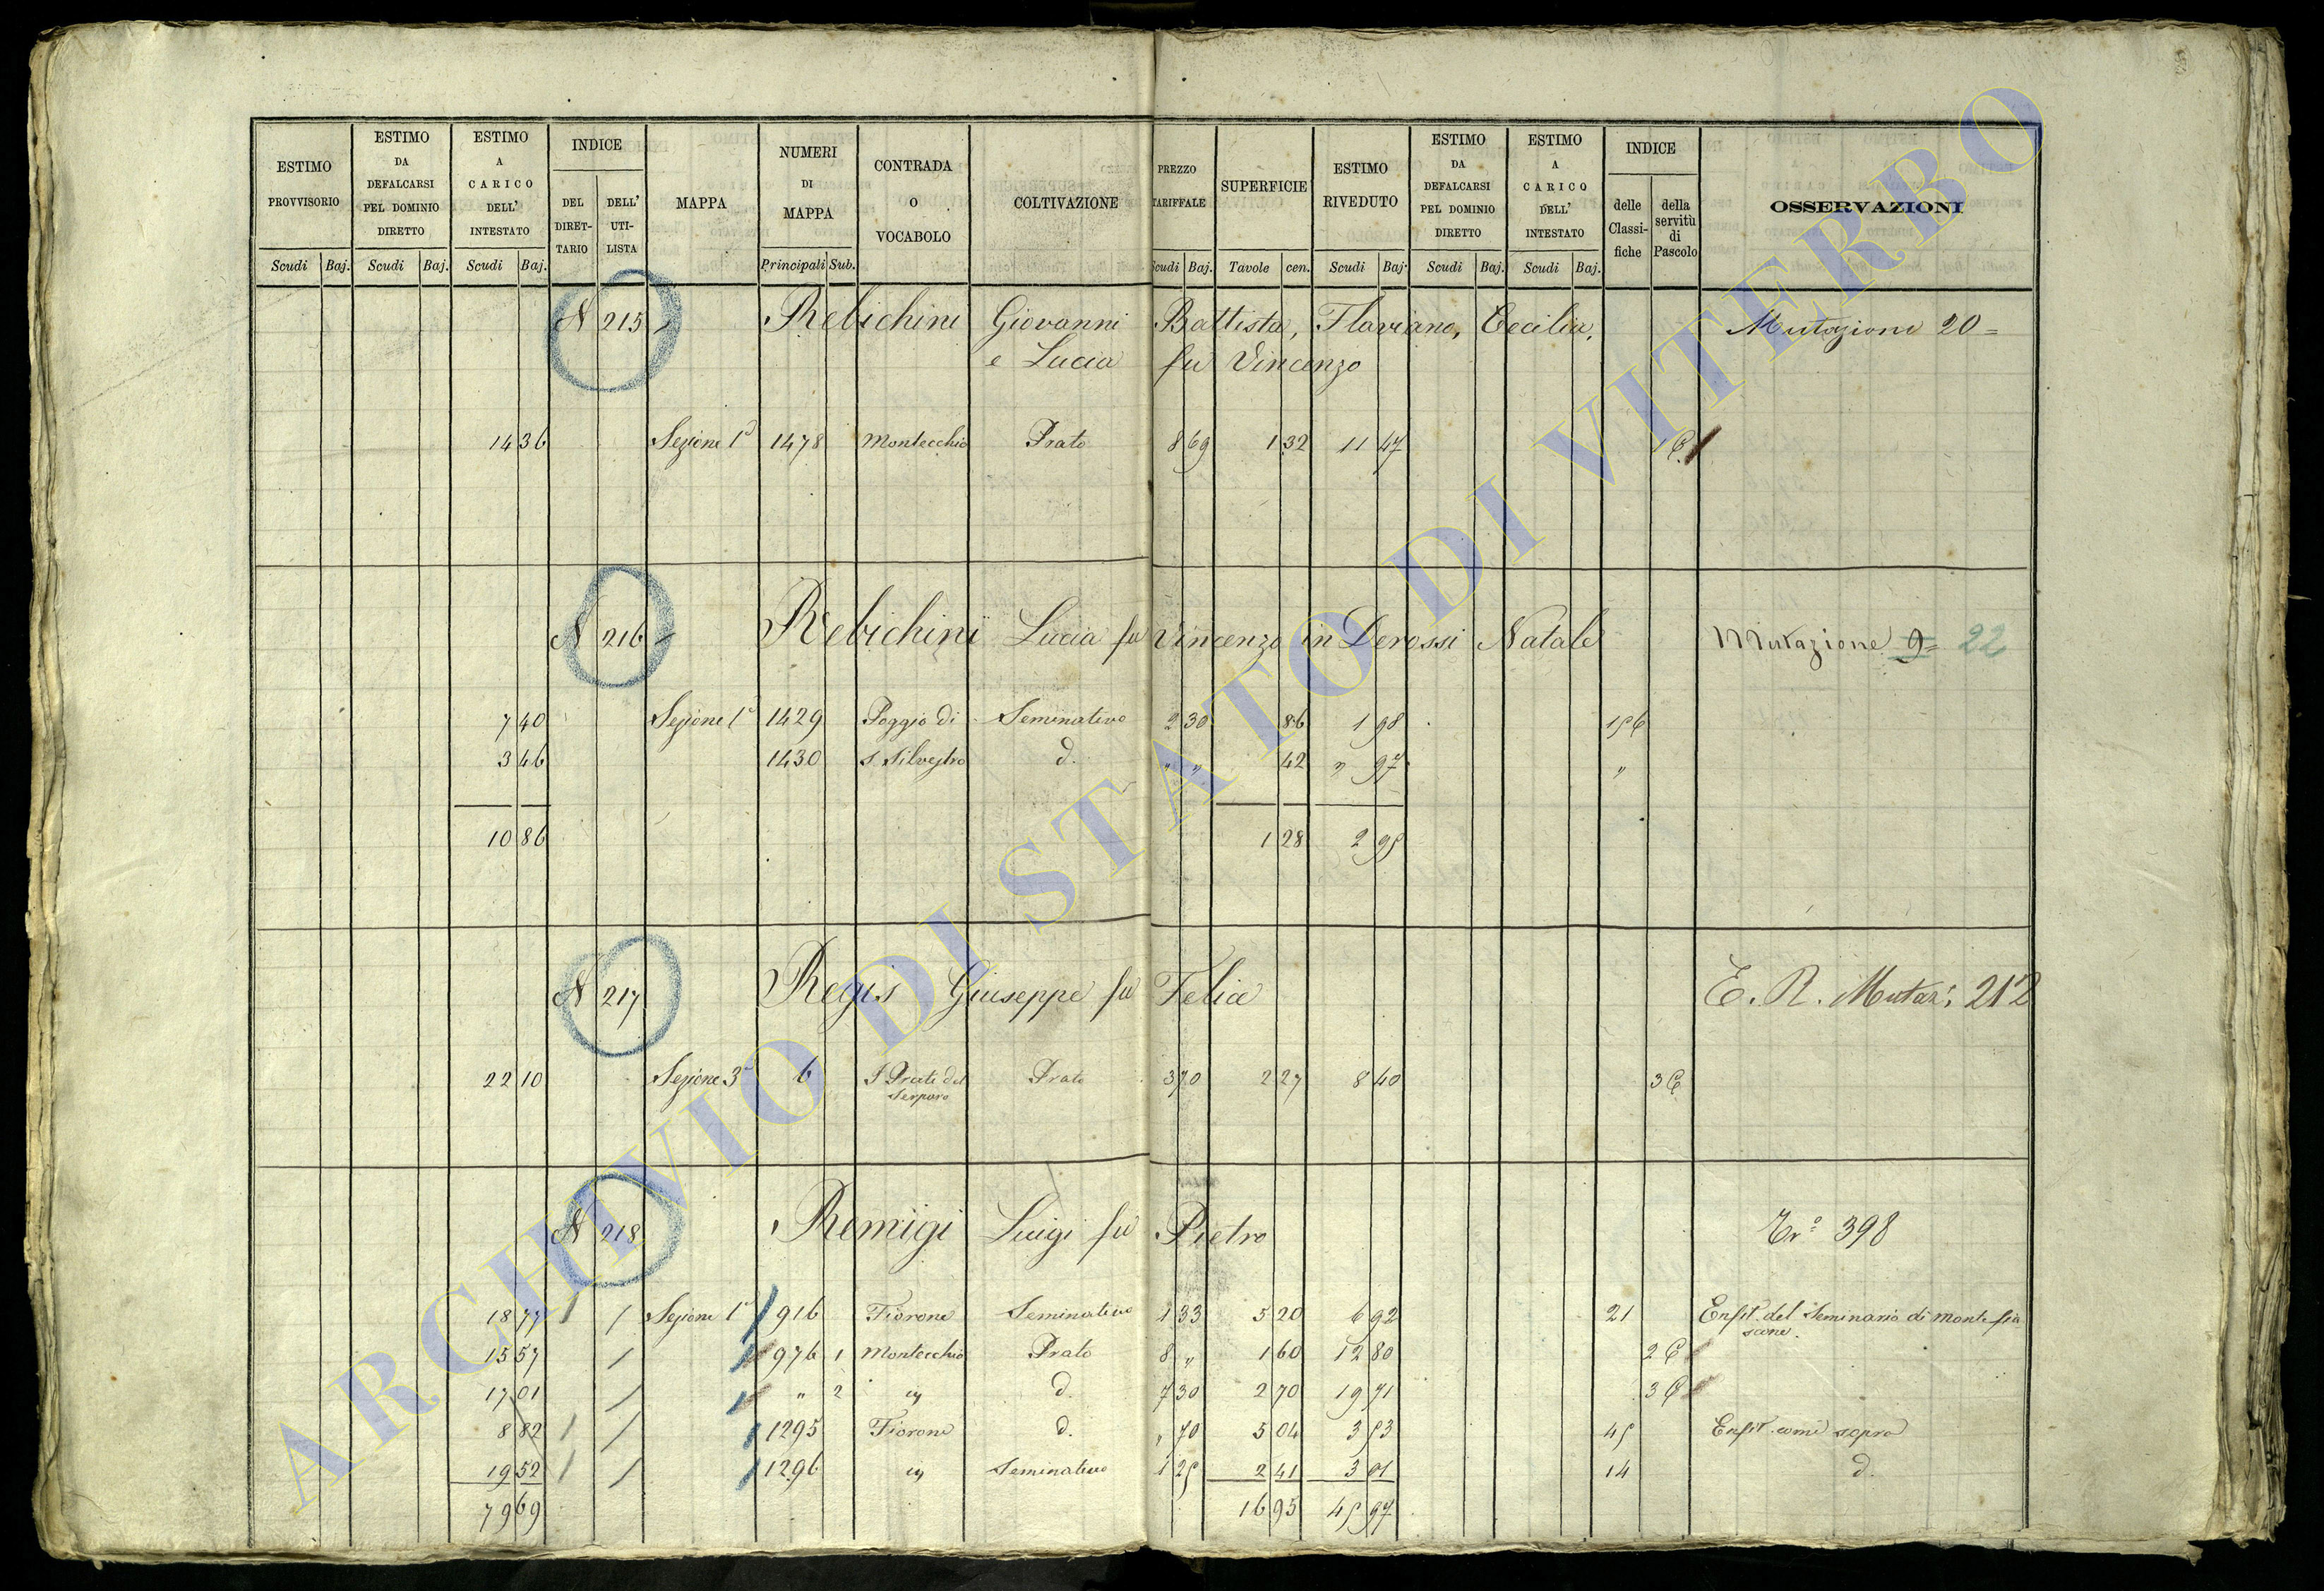 ESTIMO PROVVISORIO | ESTIMO DA DEFALCARSI PEL DOMINIO DIRETTO | ESTIMO A CARICO DELL' INTESTATO | INDICE | MAPPA | NUMERI DI MAPPA | CONTRADA O VOCABOLO | COLTIVAZIONE | PREZZO TARIFFALE | SUPERFICIE | ESTIMO RIVEDUTO | ESTIMO DA DEFALCARSI PEL DOMINIO DIRETTO | ESTIMO A CARICO DELL' INTESTATO | INDICE | OSSERVAZIONI
DEL DIRETTARIO | DELL' UTILISTA | delle Classifiche | della servitù di Pascolo
Scudi | Baj. | Scudi | Baj. | Scudi | Baj. | Principali | Sub. | Scudi | Baj. | Tavole | cen. | Scudi | Baj. | Scudi | Baj. | Scudi | Baj.
N 215 Rebichini Giovanni Battista, Flaviano, Cecilia, Mutazione 20 =
e Lucia fu Vincenzo
14 36 Sezione 1ª 1478 Montecchio Prato 8 69 1 32 11 47
N 216 Rebichini Lucia fu Vincenzo in Derossi Natale Mutazione 9= 22
7 40 Sezione 1ª 1429 Poggio di Seminativo 2 30 86 1 98 156
3 46 1430 S. Silvestro d. " " 42 " 97 "
10 86 1 28 2 95
N 217 Regis Giuseppe fu Felice E. R. Mutaz: 212
22 10 Sezione 3ª 6 Prati del Prato 3 70 2 27 8 40 3
N 218 Remigi Luigi fu Pietro 398
18 77 Sezione 1ª 916 Fiorone Seminativo 1 33 5 20 6 92 21 Enfit. del Seminario di Montefia
scone.
15 57 976 1 Montecchio Prato 8 " 1 60 12 80 2
17 01 " 2 d. 7 30 2 70 19 71 3
8 82 1295 Fiorone d. " 70 5 04 3 53 45 Enfit. come sopra
19 52 1296 Seminativo 1 25 2 41 3 01 14 d.
79 69 16 95 45 97
ARCHIVIO DI STATO DI VITERBO